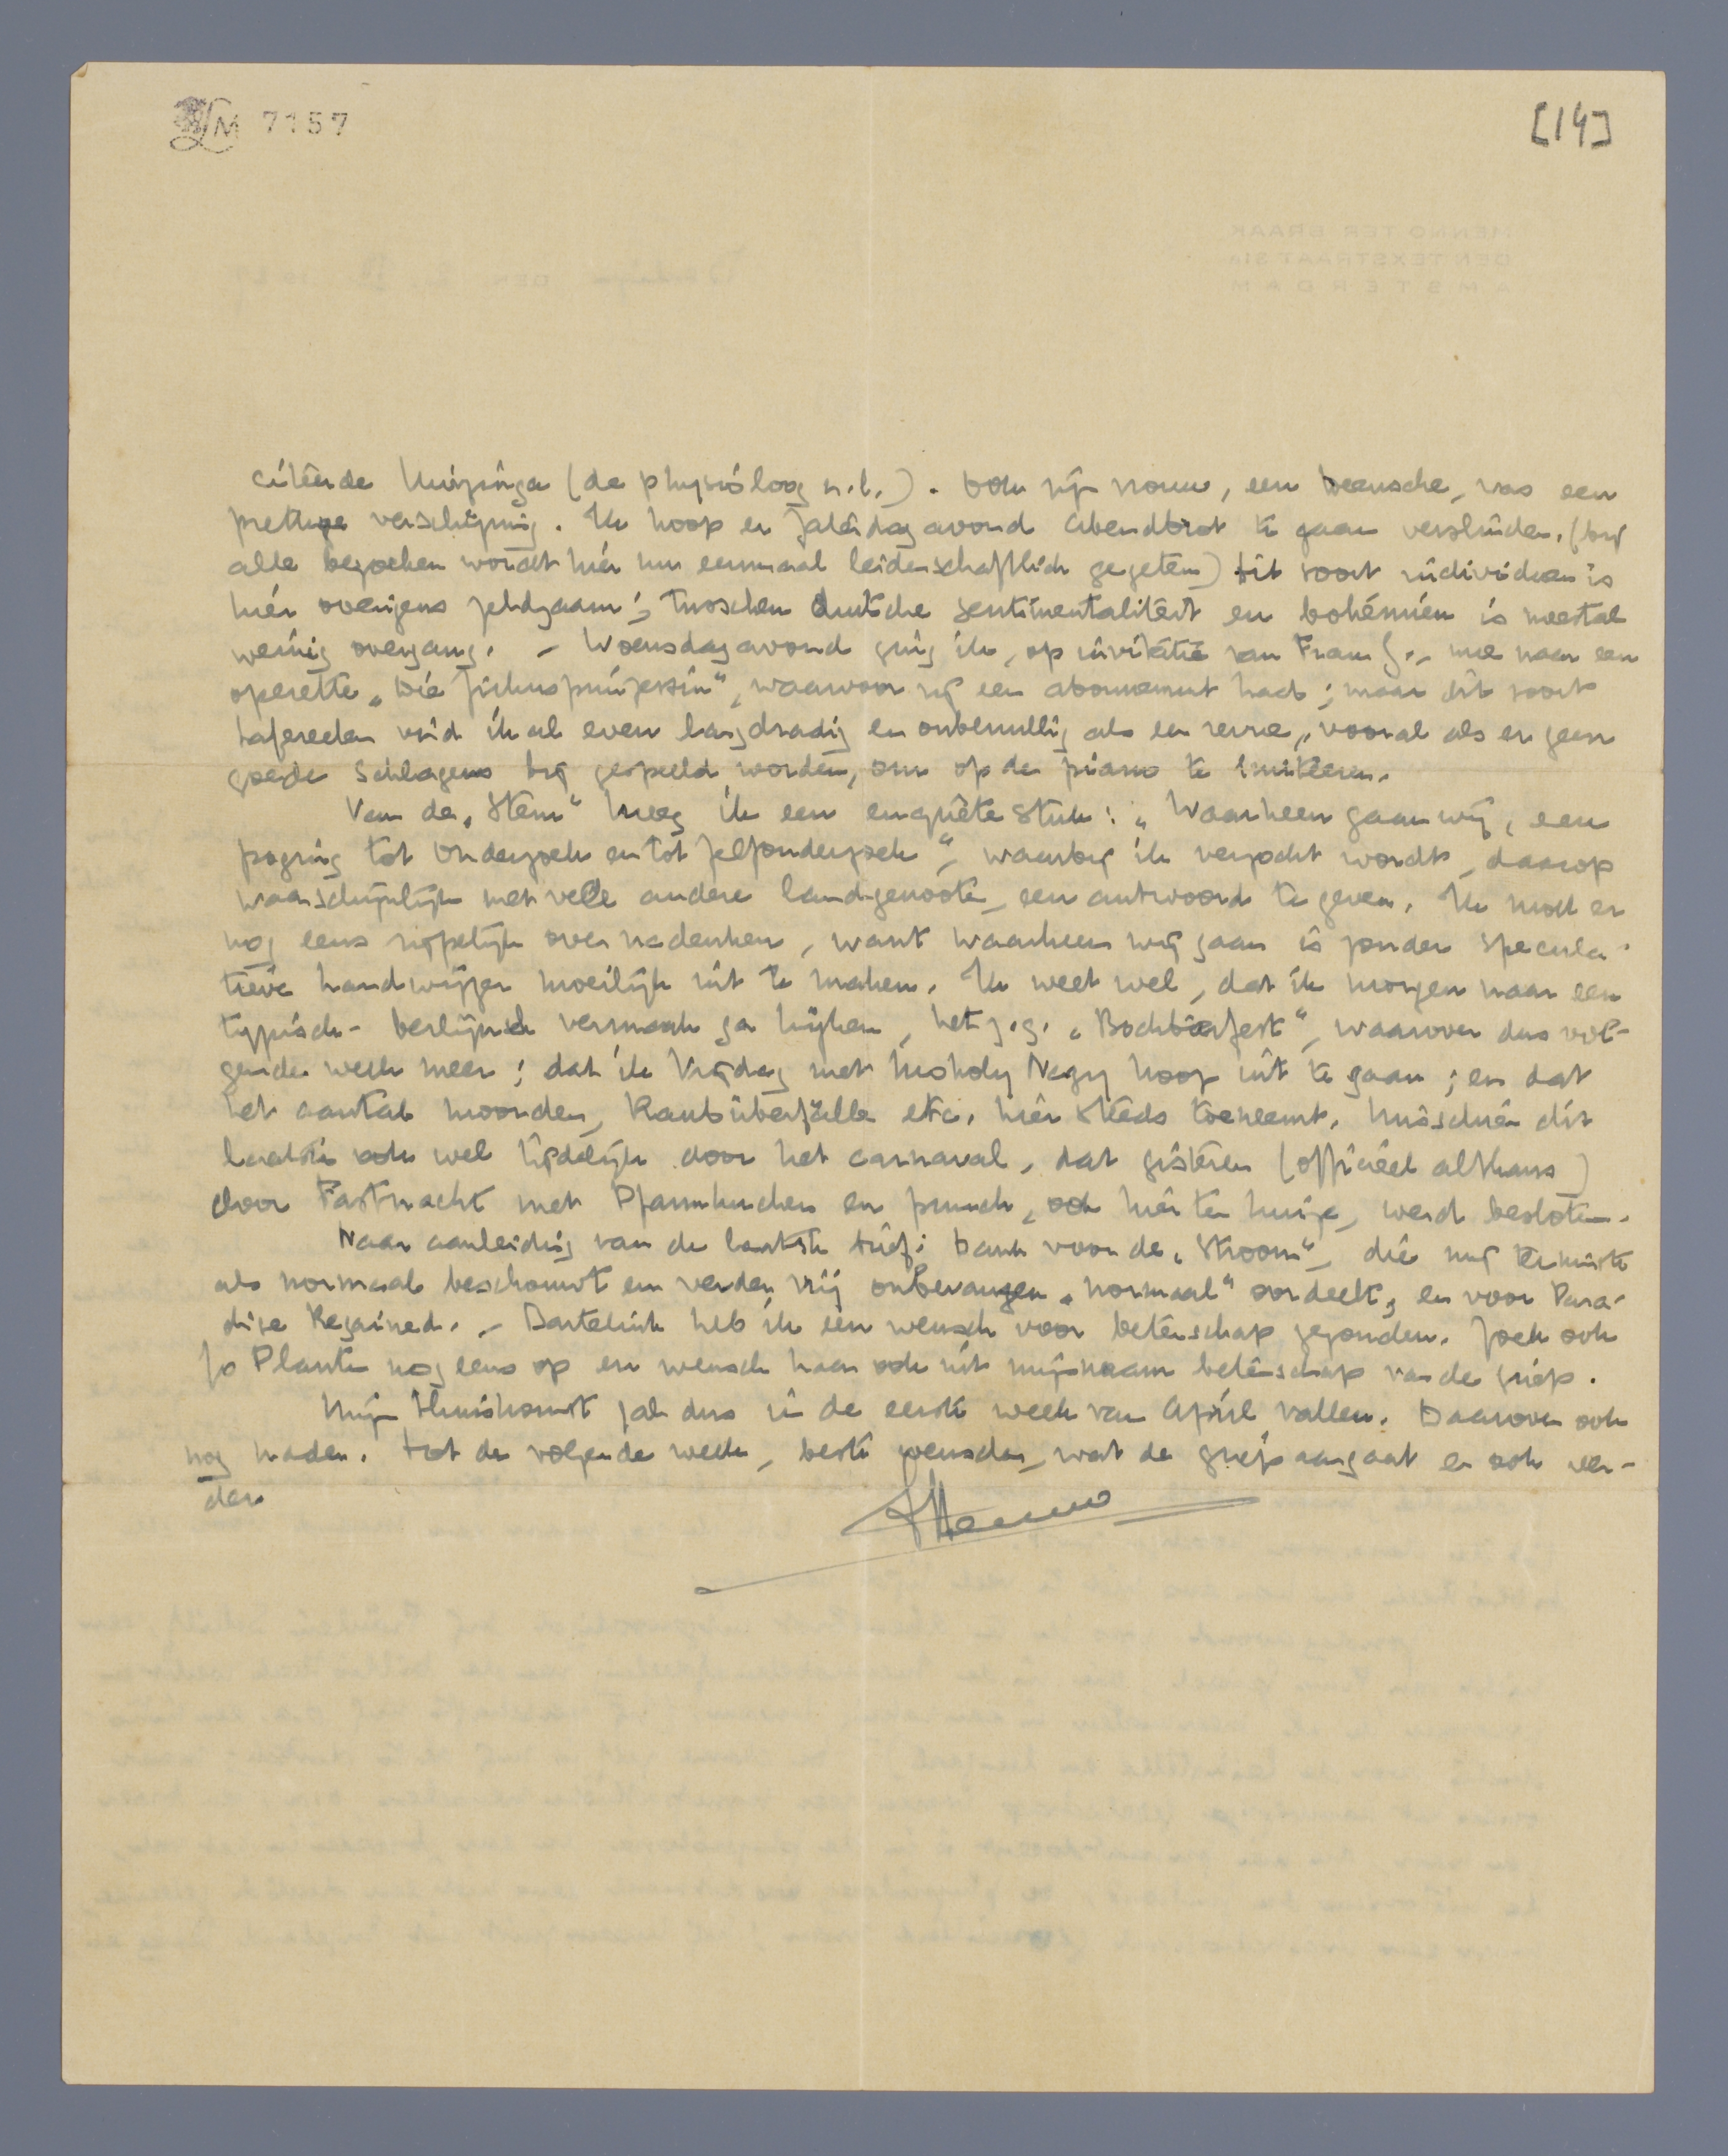 LM 7157
[14]
citeerde Huizinga (de physioloog n.l.). Ook zijn vrouw, een Weensche, was een
prettige verschijning. Ik hoop er Zaterdagavond Abendbrot te gaan verslinden. (bij
alle bezoeken wordt hier nu eenmaal leidenschaftlich gegeten) Dit soort individuen is
hier overigens zeldzaam; tusschen Duitsche sentimentaliteit en bohémien is meestal
weinig overgang. – Woensdagavond ging ik, op invitatie van Frau G., mee naar een
operette „Die Zirkusprinzessin", waarvoor zij een abonnement had; maar dit soort
tafereelen vind ik al even langdradig en onbenullig als een revue, vooral als er geen
goede Schlagers bij gespeeld worden, om op de piano te imiteeren.
Van de „Stem" kreeg ik een enquête stuk: „Waarheen gaan wij, een
poging tot Onderzoek en tot Zelfonderzoek", waarbij ik verzocht wordt, daarop
waarschijnlijk met vele andere landgenooten, een antwoord te geven. Ik moet er
nog eens rijpelijk over nadenken, want waarheen wij gaan is zonder specula-
tieve handwijzer moeilijk uit te maken. Ik weet wel, dat ik morgen naar een
typisch-berlijnsch vermaak ga kijken, het z.g. „Bockbierfest", waarover dus vol-
gende week meer; dat ik Vrijdag met Moholy Nagy hoop uit te gaan; en dat
het aantal moorden, Raubüberfälle etc. hier steeds toeneemt. Misschien dit
laatste ook wel tijdelijk door het carnaval, dat gisteren (officieel althans)
door Fastnacht met Pfannkuchen en punch, ook hier ten huize, werd besloten.
Naar aanleiding van de laatste brief: Dank voor de „Stroom", die mij tenminste
als normaal beschouwt en verder vrij onbevangen „normaal" oordeelt, en voor Para-
dise Regained. – Dantelink heb ik een wensch voor beterschap gezonden. Zoek ook
Jo Planten nog eens op en wensch haar ook uit mijn naam beterschap van de griep.
Mijn thuiskomst zal dus in de eerste week van April vallen. Daarover ook
nog nader. Tot de volgende week, beste wenschen, wat de griep aangaat en ook ver-
der
Menno